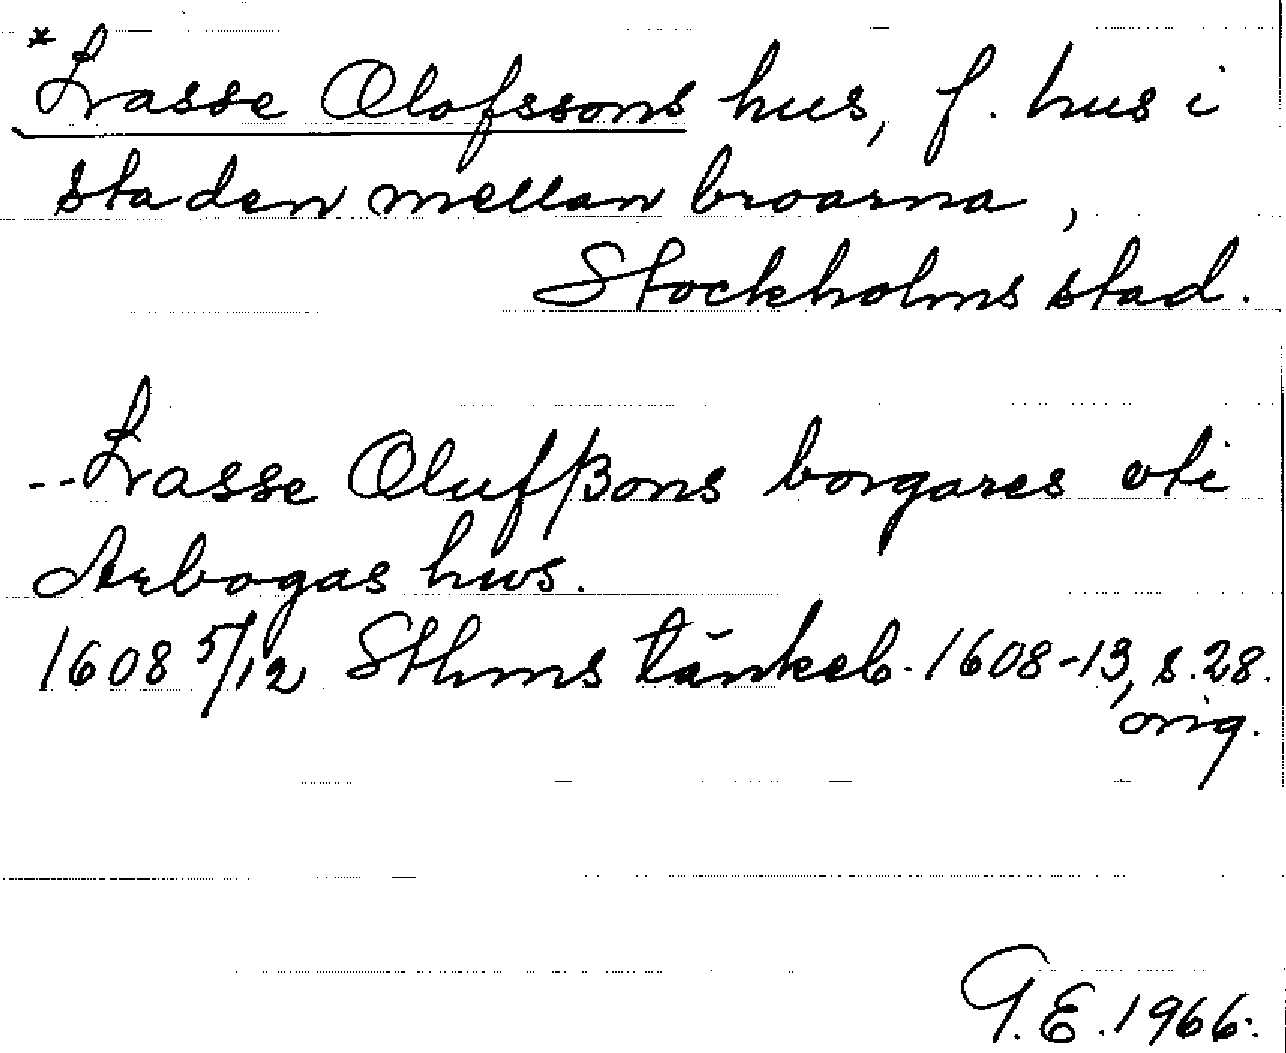 *Lasse Olofssons hus, f. hus i
staden mellan broarna,
Stockholms stad.
--Lasse Olufßons borgares vti
Arbogas hws.
1608 5/12 Sthms tänkeb. 1608-13, s. 28.
orig.
G.E. 1966.